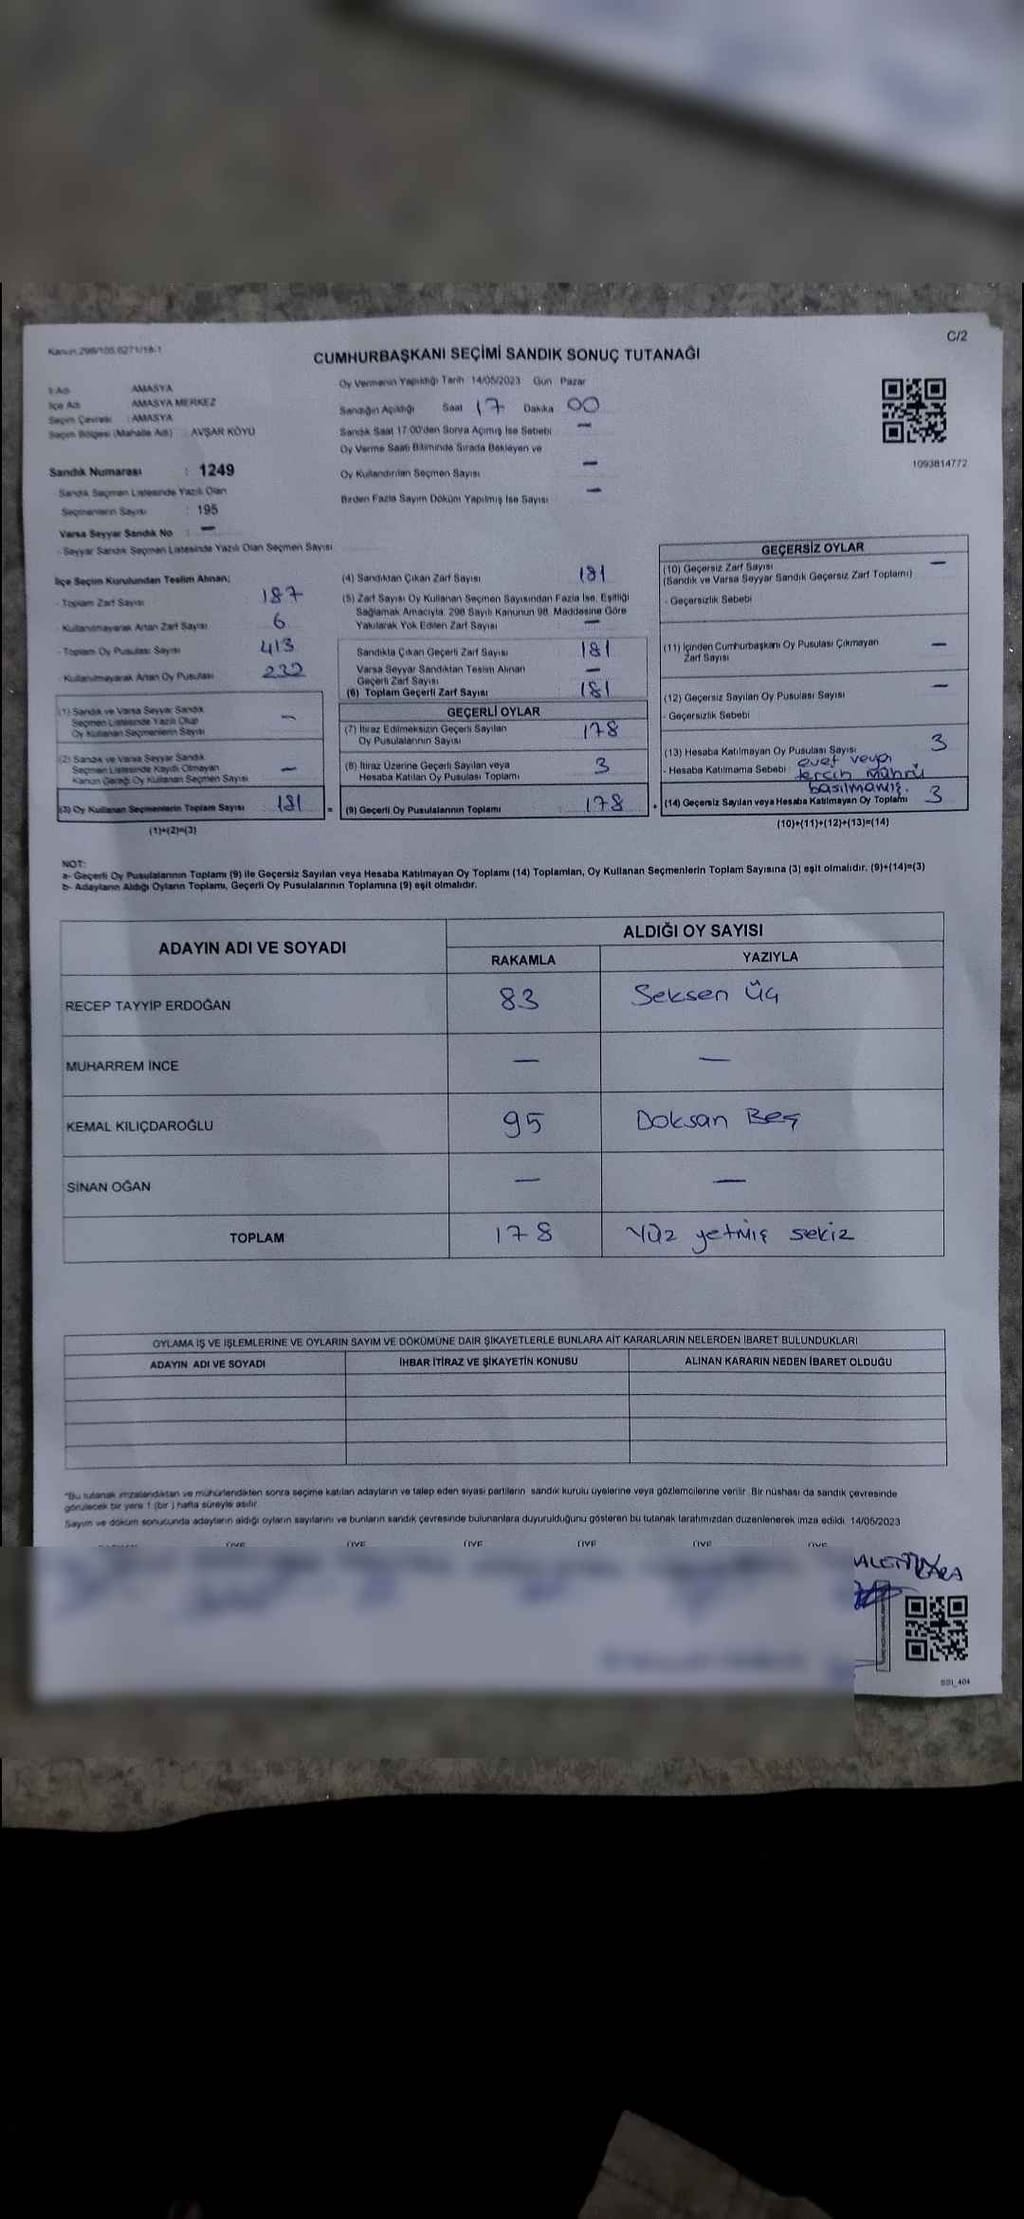 Kanun 298/105,6271/18-1
C/2
CUMHURBAŞKANI SEÇİMİ SANDIK SONUÇ TUTANAĞI
İl Adı AMASYA
İlçe Adı AMASYA MERKEZ
Seçim Çevresi : AMASYA
Seçim Bölgesi (Mahalle Adı) : AVŞAR KÖYÜ
Sandık Numarası : 1249
- Sandık Seçmen Listesinde Yazılı Olan
Seçmenlerin Sayısı : 195
Varsa Seyyar Sandık No : —
- Seyyar Sandık Seçmen Listesinde Yazılı Olan Seçmen Sayısı
Oy Vermenin Yapıldığı Tarih 14/05/2023 Gün Pazar
Sandığın Açıldığı Saat 17 Dakika 00
Sandık Saat 17.00'den Sonra Açılmış İse Sebebi —
Oy Verme Saati Bitiminde Sırada Bekleyen ve
Oy Kullandırılan Seçmen Sayısı —
Birden Fazla Sayım Döküm Yapılmış İse Sayısı —
1093814772
İlçe Seçim Kurulundan Teslim Alınan;
- Toplam Zarf Sayısı 187
Kullanılmayarak Artan Zarf Sayısı 6
- Toplam Oy Pusulası Sayısı 413
- Kullanılmayarak Artan Oy Pusulası 232
(1) Sandık ve Varsa Seyyar Sandık
Seçmen Listesinde Yazılı Olup
Oy Kullanan Seçmenlerin Sayısı —
(2) Sandık ve Varsa Seyyar Sandık
Seçmen Listesinde Kaydı Olmayan
Kanun Gereği Oy Kullanan Seçmen Sayısı —
(3) Oy Kullanan Seçmenlerin Toplam Sayısı 181 =
(1)+(2)=(3)
(4) Sandıktan Çıkan Zarf Sayısı 181
(5) Zarf Sayısı Oy Kullanan Seçmen Sayısından Fazla İse, Eşitliği
Sağlamak Amacıyla, 298 Sayılı Kanunun 98. Maddesine Göre
Yakılarak Yok Edilen Zarf Sayısı —
Sandıkta Çıkan Geçerli Zarf Sayısı 181
Varsa Seyyar Sandıktan Teslim Alınan
Geçerli Zarf Sayısı —
(6) Toplam Geçerli Zarf Sayısı 181
GEÇERLİ OYLAR
(7) İtiraz Edilmeksizin Geçerli Sayılan
Oy Pusulalarının Sayısı 178
(8) İtiraz Üzerine Geçerli Sayılan veya
Hesaba Katılan Oy Pusulası Toplamı 3
(9) Geçerli Oy Pusulalarının Toplamı 178 +
GEÇERSİZ OYLAR
(10) Geçersiz Zarf Sayısı —
(Sandık ve Varsa Seyyar Sandık Geçersiz Zarf Toplamı)
- Geçersizlik Sebebi
(11) İçinden Cumhurbaşkanı Oy Pusulası Çıkmayan
Zarf Sayısı —
(12) Geçersiz Sayılan Oy Pusulası Sayısı —
- Geçersizlik Sebebi
(13) Hesaba Katılmayan Oy Pusulası Sayısı 3
- Hesaba Katılmama Sebebi evet veya
tercih mührü
basılmamış.
(14) Geçersiz Sayılan veya Hesaba Katılmayan Oy Toplamı 3
(10)+(11)+(12)+(13)=(14)
NOT:
a- Geçerli Oy Pusulalarının Toplamı (9) ile Geçersiz Sayılan veya Hesaba Katılmayan Oy Toplamı (14) Toplamları, Oy Kullanan Seçmenlerin Toplam Sayısına (3) eşit olmalıdır. (9)+(14)=(3)
b- Adayların Aldığı Oyların Toplamı, Geçerli Oy Pusulalarının Toplamına (9) eşit olmalıdır.
ADAYIN ADI VE SOYADI
ALDIĞI OY SAYISI
RAKAMLA YAZIYLA
RECEP TAYYİP ERDOĞAN 83 Seksen Üç
MUHARREM İNCE — —
KEMAL KILIÇDAROĞLU 95 Doksan Beş
SİNAN OĞAN — —
TOPLAM 178 Yüz yetmiş sekiz
OYLAMA İŞ VE İŞLEMLERİNE VE OYLARIN SAYIM VE DÖKÜMÜNE DAİR ŞİKAYETLERLE BUNLARA AİT KARARLARIN NELERDEN İBARET BULUNDUKLARI
ADAYIN ADI VE SOYADI İHBAR İTİRAZ VE ŞİKAYETİN KONUSU ALINAN KARARIN NEDEN İBARET OLDUĞU
"Bu tutanak imzalandıktan ve mühürlendikten sonra seçime katılan adayların ve talep eden siyasi partilerin sandık kurulu üyelerine veya gözlemcilerine verilir. Bir nüshası da sandık çevresinde
görülecek bir yere 1 (bir) hafta süreyle asılır.
Sayım ve döküm sonucunda adayların aldığı oyların sayılarını ve bunların sandık çevresinde bulunanlara duyurulduğunu gösteren bu tutanak tarafımızdan düzenlenerek imza edildi. 14/05/2023
ÜYE ÜYE ÜYE ÜYE ÜYE ÜYE
KARA